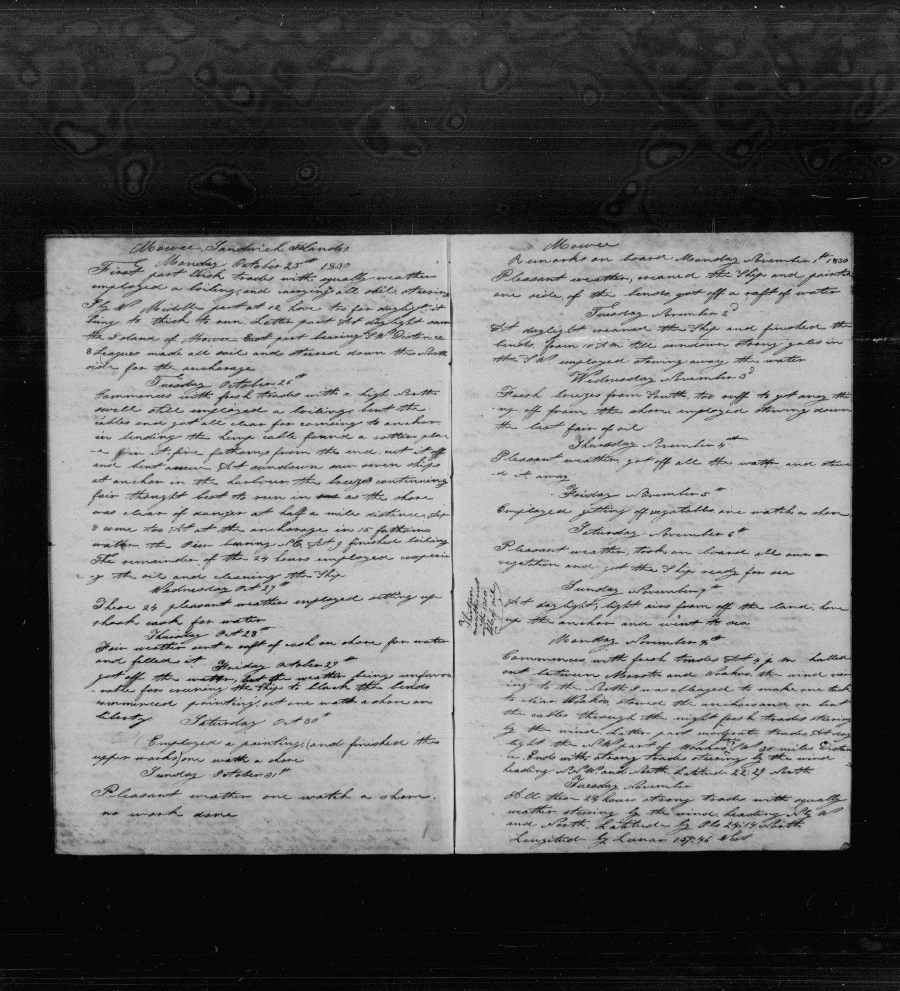 Mowee Sandwich Islands
Monday October 25th 1830
First part thick trades with squally weather
employed a boiling and carrying all sail steering
S by W Middle part at 12 hove too for daylight it
being to thick to run Latter part At daylight saw
the Island of Mowee East part bearing SW Distance
8 Leagues made all sail and steered down the North
side for the anchorage
Tuesday October 26th
Commences with fresh trades with a high North
swell still employed a boiling bent the
cables and got all clear for coming to anchor
in bending the hemp cable found a rotten place
in it five fathoms from the end cut it off
and bent again At sundown saw seven ships
at anchor in the harbour the breeze continuing
fair thought best to run in as the shore
was clear of danger at half a mile distance
& came too at the anchorage in 15 fathoms
water, the Pier bearing NE At 9 finished boiling
The remainder of the 24 hours employed cooperin
g the oil and cleaning the Ship
Wednesday Oct 27th
These 24 pleasant weather employed setting up
shook cask for water
Thursday Oct 28th
Fair weather sent a raft of cask on shore for water
and filled it Friday October 29th
got off the water, but the weather being unfavou
rable for cruning the Ship to black the bends
commenced painting, one wath a shore on
liberty Saturday Oct 30th
Employed a painting (and finished the
upper works) one wath a shore
Sunday October 31st
Pleasant weather one watch a shore
no work done
Mowee
Remarks on board Monday November 1st 1830
Pleasant weather, creaned the Ship and painte
one side of the bends, got off a raft of water
Tuesday November 2d
At daylight creaned the Ship and finished the
bends from 10 AM till sundown strong gales in
the SW employed stowing away the water
Wednesday November 3d
Fresh breezes from South, too ruff to get any thi
ng off from the shore employed stowing down
the last fair of oil
Thursday November 4th
Pleasant weather, got off all the water and stow
d it away
Friday November 5th
Employed getting off vegatables one watch a shore
Saturday November 6th
Pleasant weather, took on board all our
vegetation and got the Ship ready for sea
Sunday November 7th
At daylight, light airs from off the land, hove
up the anchor and went to sea
Monday November 8th
Commences with fresh trades At 4 p m halled
out between Morotoi and Woahoo, the wind vere
ing to the North I was obleaged to make one tack
to clear Woahoo, stowed the anchors and on bent
the cables through the night fresh trades steering
by the wind Latter part moderate trades At day
light the NW part of Woahoo SW 30 miles Distan
ce Ends with strong trades steering by the wind
heading NNW and North Latitude 22:29 North
Tuesday November
All these 24 hours strong trades with squally
weather steering by the wind heading N by W
and North Latitude by Obs 24:14 North
Longitude by Lunar 157:46 West